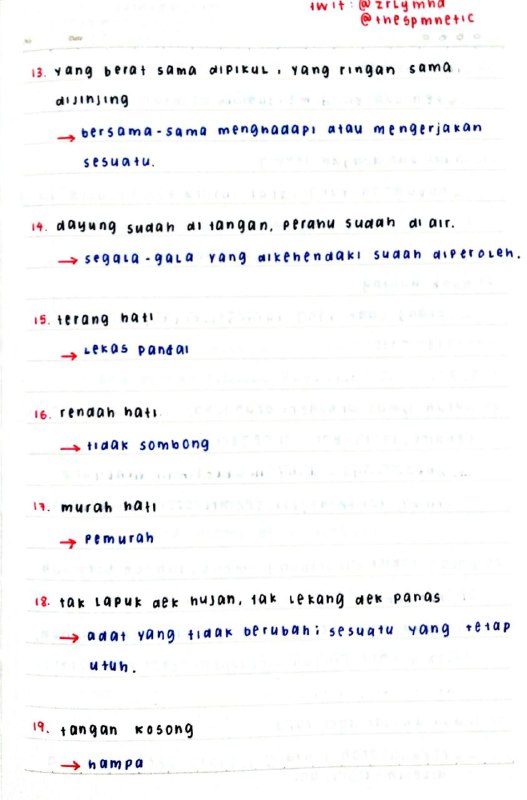 twit: @zrlymna
@thespmnetic
No
Date
13. yang berat sama dipikul, yang ringan sama
dijinjing
→ bersama-sama menghadapi atau mengerjakan
sesuatu.
14. dayung sudah di tangan, perahu sudah di air.
→ segala-gala yang dikehendaki sudah diperoleh.
15. terang hati
→ lekas pandai
16. rendah hati
→ tidak sombong
17. murah hati
→ pemurah
18. tak lapuk dek hujan, tak lekang dek panas
→ adat yang tidak berubah; sesuatu yang tetap
utuh.
19. tangan kosong
→ hampa